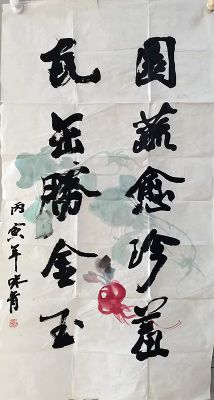 園蔬愈珍羞
瓦缶勝金玉
丙寅年